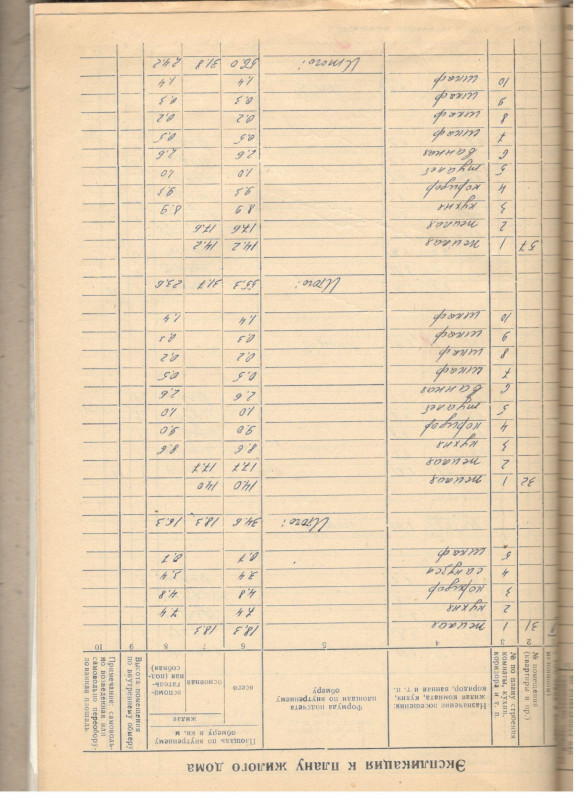 Экспликация к плану жилого дома
№ помещения (квартиры и пр.)
№ по плану строения комнаты, кухни, коридора и т. п.
Назначение помещения: жилая комната, кухня, коридор, ванная и т. п.
Формула подсчета площади по внутреннему обмеру
Площадь по внутреннему обмеру в кв. м
жилая
всего
основная
вспомогательная (подсобная)
Высота помещения по внутреннему обмеру
Примечание: самовольно возведенная или самовольно переоборудованная площадь
2 3 4 5 6 7 8 9 10
31 1 жилая 18.3 18.3
2 кухня 7.4 7.4
3 коридор 4.8 4.8
4 санузел 3.4 3.4
5 шкаф 0.7 0.7
Итого: 34.6 18.3 16.3
32 1 жилая 14.0 14.0
2 жилая 17.7 17.7
3 кухня 8.6 8.6
4 коридор 9.0 9.0
5 туалет 1.0 1.0
6 ванная 2.6 2.6
7 шкаф 0.5 0.5
8 шкаф 0.2 0.2
9 шкаф 0.3 0.3
10 шкаф 1.4 1.4
Итого: 55.3 31.7 23.6
37 1 жилая 14.2 14.2
2 жилая 17.6 17.6
3 кухня 8.9 8.9
4 коридор 9.3 9.3
5 туалет 1.0 1.0
6 ванная 2.6 2.6
7 шкаф 0.5 0.5
8 шкаф 0.2 0.2
9 шкаф 0.3 0.3
10 шкаф 1.4 1.4
Итого: 56.0 31.8 24.2